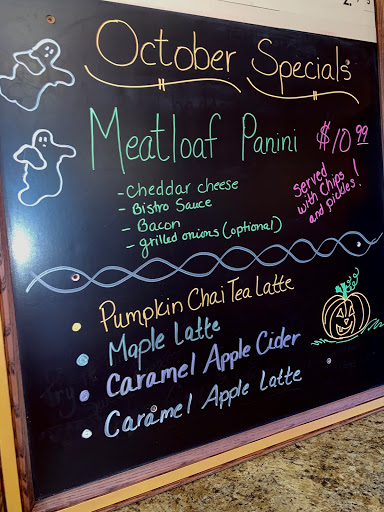 October Specials
Meatloaf Panini $10.99
- Cheddar cheese
- Bistro Sauce
- Bacon
- grilled onions (optional)
Served
with Chips
and pickles!
• Pumpkin Chai Tea Latte
• Maple Latte
• Caramel Apple Cider
• Caramel Apple Latte